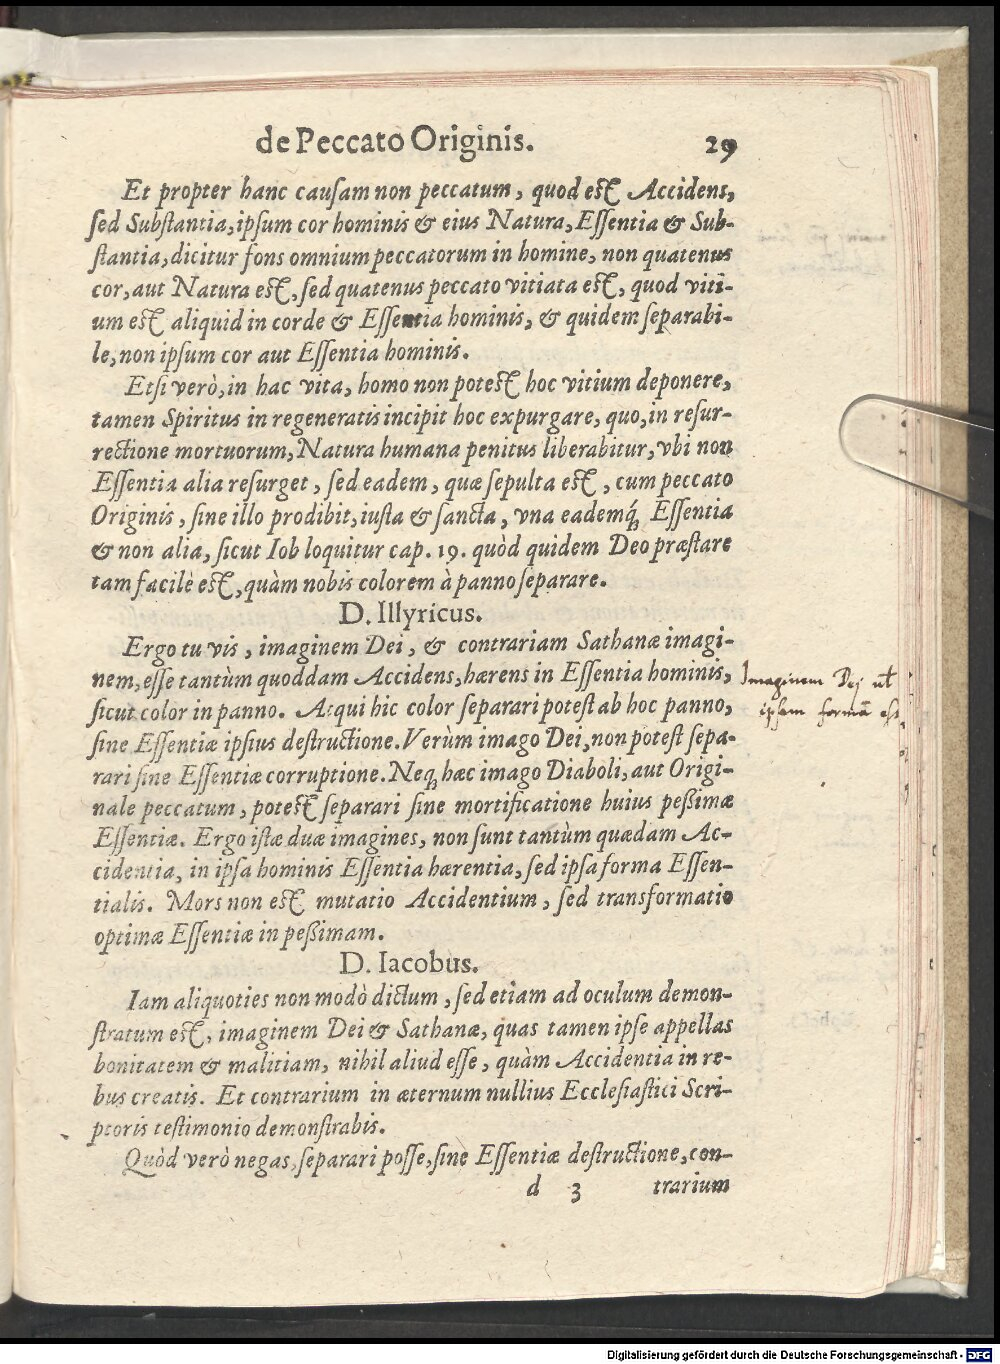 de Peccato Originis. 29
Et propter hanc causam non peccatum, quod est Accidens,
sed Substantia, ipsum cor hominis & eius Natura, Essentia & Sub-
stantia, dicitur fons omnium peccatorum in homine, non quatenus
cor, aut Natura est, sed quatenus peccato vitiata est, quod viti-
um est aliquid in corde & Essentia hominis, & quidem separabi-
le, non ipsum cor aut Essentia hominis.
Etsi verò, in hac vita, homo non potest hoc vitium deponere,
tamen Spiritus in regeneratis incipit hoc expurgare, quo, in resur-
rectione mortuorum, Natura humana penitus liberabitur, vbi non
Essentia alia resurget, sed eadem, quæ sepulta est, cum peccato
Originis, sine illo prodibit, iusta & sancta, vna eademq́; Essentia
& non alia, sicut Iob loquitur cap. 19. quòd quidem Deo præstare
tam facilè est, quàm nobis colorem à panno separare.
D. Illyricus.
Ergo tu vis, imaginem Dei, & contrariam Sathanæ imagi-
nem, esse tantùm quoddam Accidens, hærens in Essentia hominis,
sicut color in panno. Atqui hic color separari potest ab hoc panno,
sine Essentiæ ipsius destructione. Verùm imago Dei, non potest sepa-
rari sine Essentiæ corruptione. Neq; hæc imago Diaboli, aut Origi-
nale peccatum, potest separari sine mortificatione huius peßimæ
Essentiæ. Ergo istæ duæ imagines, non sunt tantùm quædam Ac-
cidentia, in ipsa hominis Essentia hærentia, sed ipsa forma Essen-
tialis. Mors non est mutatio Accidentium, sed transformatio
optimæ Essentiæ in peßimam.
D. Iacobus.
Iam aliquoties non modò dictum, sed etiam ad oculum demon-
stratum est, imaginem Dei & Sathanæ, quas tamen ipse appellas
bonitatem & malitiam, nihil aliud esse, quàm Accidentia in re-
bus creatis. Et contrarium in æternum nullius Ecclesiastici Scri-
ptoris testimonio demonstrabis.
Quòd verò negas, separari posse, sine Essentiæ destructione, con-
d 3 trarium
Imaginem Dej
ipsam formā
Digitalisierung gefördert durch die Deutsche Forschungsgemeinschaft - DFG